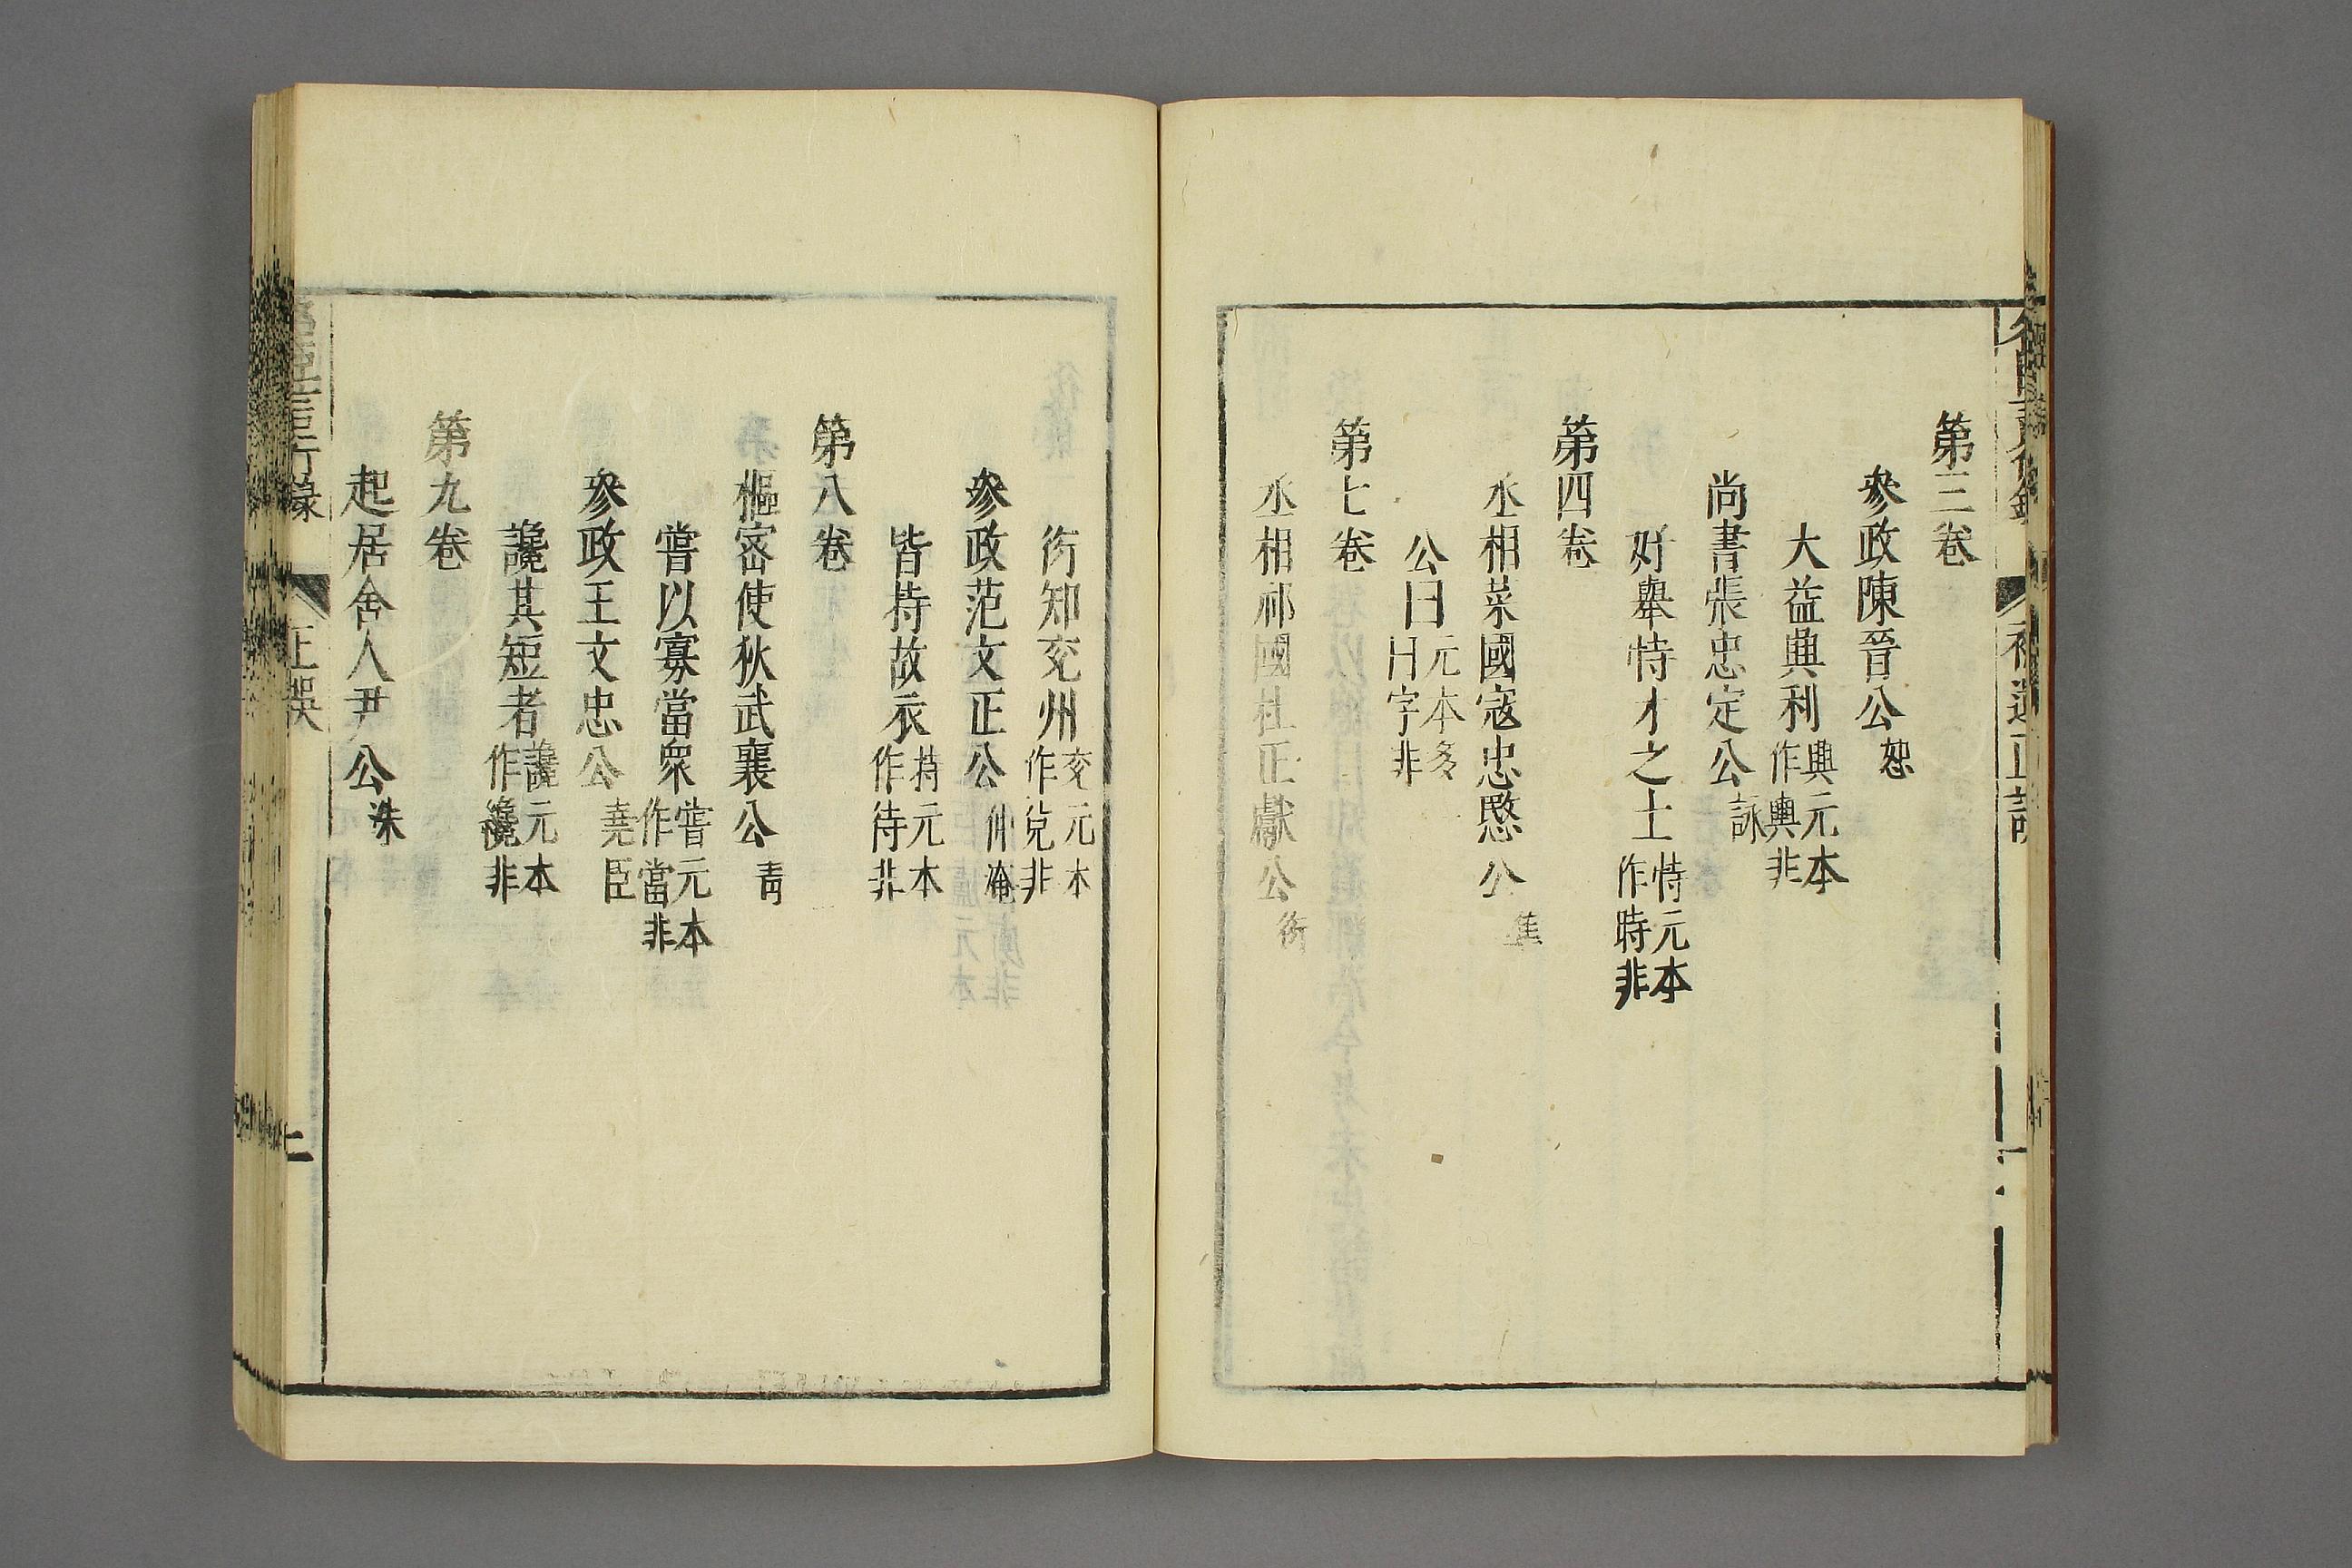 第三卷
參政陳晉公恕
大益興利興元本作輿非
尚書張忠定公詠
好舉恃才之士恃元本作時非
第四卷
丞相萊國寇忠愍公
公曰元本多日字非
第七卷
丞相祁國杜正獻公衍
衍知兖州兖元本作兊非
參政范文正公仲淹
皆持故衣持元本作待非
第八卷
樞密使狄武襄公青
嘗以寡當衆當元本作當非
參政王文忠公堯臣
讒其短者讒元本作纔非
第九卷
起居舍人尹公洙
言行錄
正誤
二